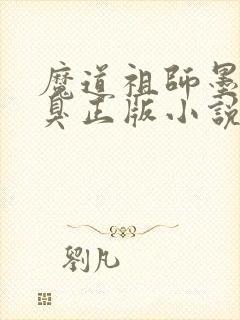 魔道祖師墨
臭正版小說
劉凡